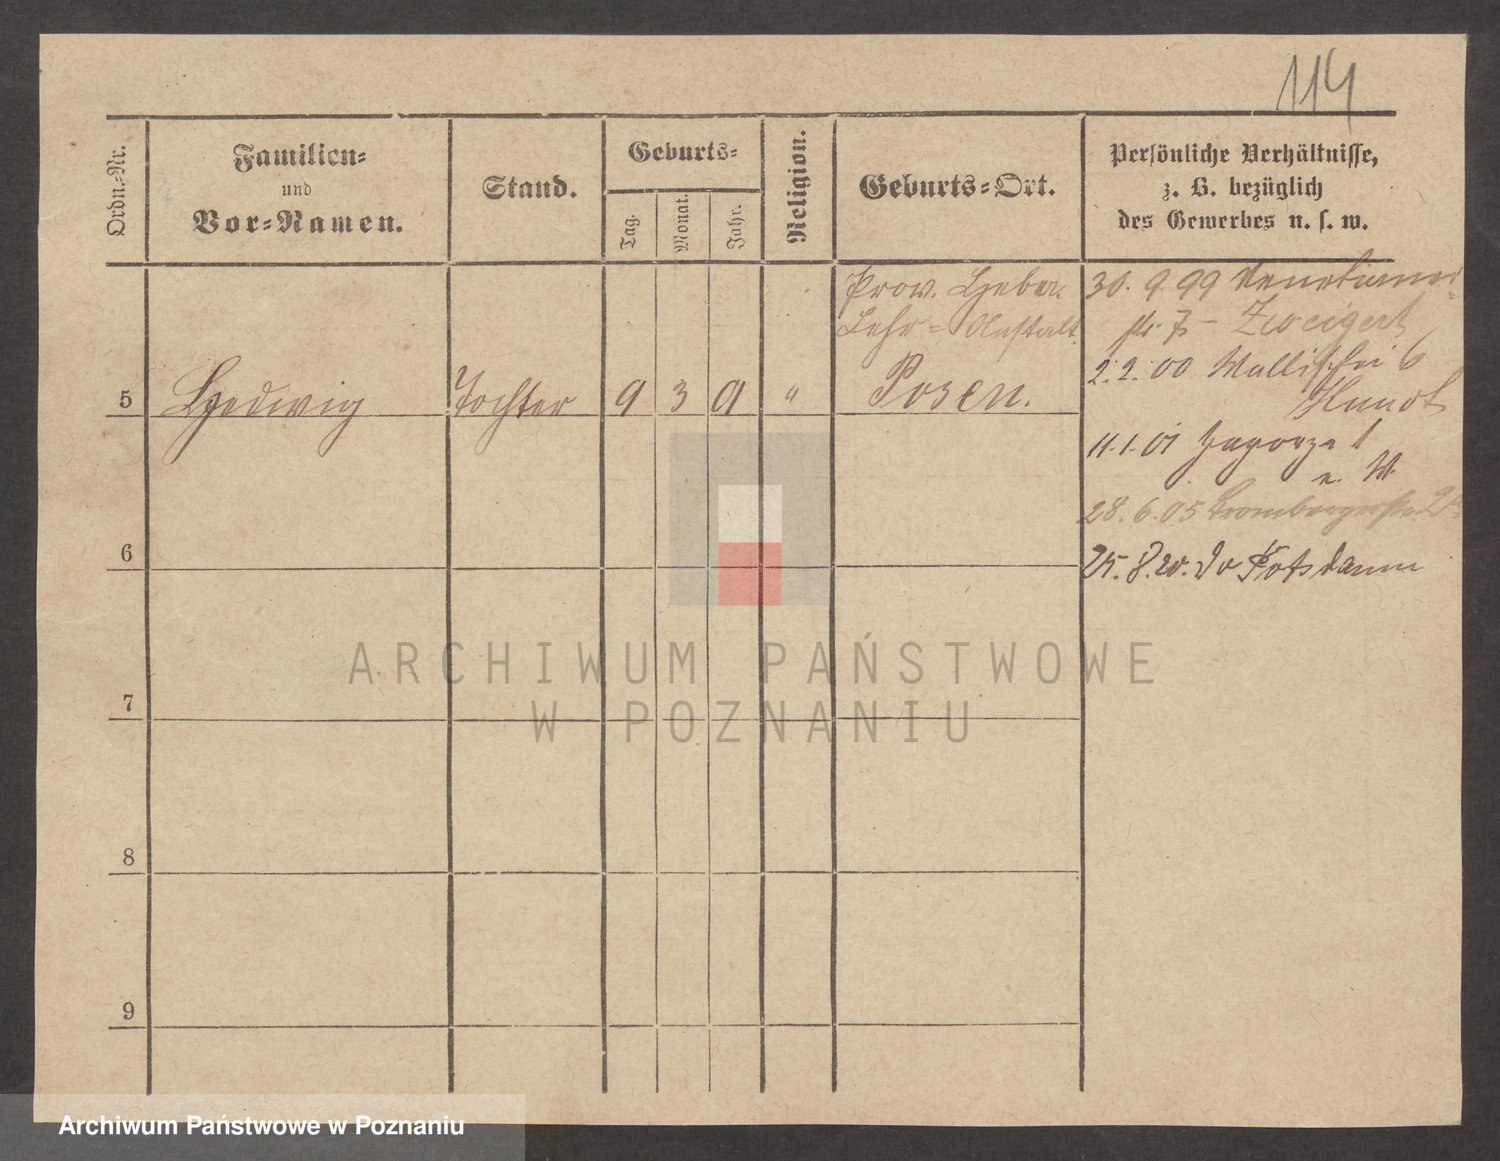 114
Ordn.-Nr.
Familien-
und
Vor-Namen.
Stand.
Geburts-
Tag.
Monat.
Jahr.
Religion.
Geburts-Ort.
Persönliche Verhältnisse,
z. B. bezüglich
des Gewerbes u. s. w.
5 Hedwig Tochter 9 3 01 "
Prov. Hebam.
Lehr-Anstalt
Posen.
30. 9. 99
str. 7 - Zweigert
2. 2. 00 Wallischei 6
11. 1. 01 Zagorze 1
28. 6. 05 Brombergerstr.
25. 8. 20. Potsdamm
6
7
8
9
ARCHIWUM PAŃSTWOWE
W POZNANIU
Archiwum Państwowe w Poznaniu